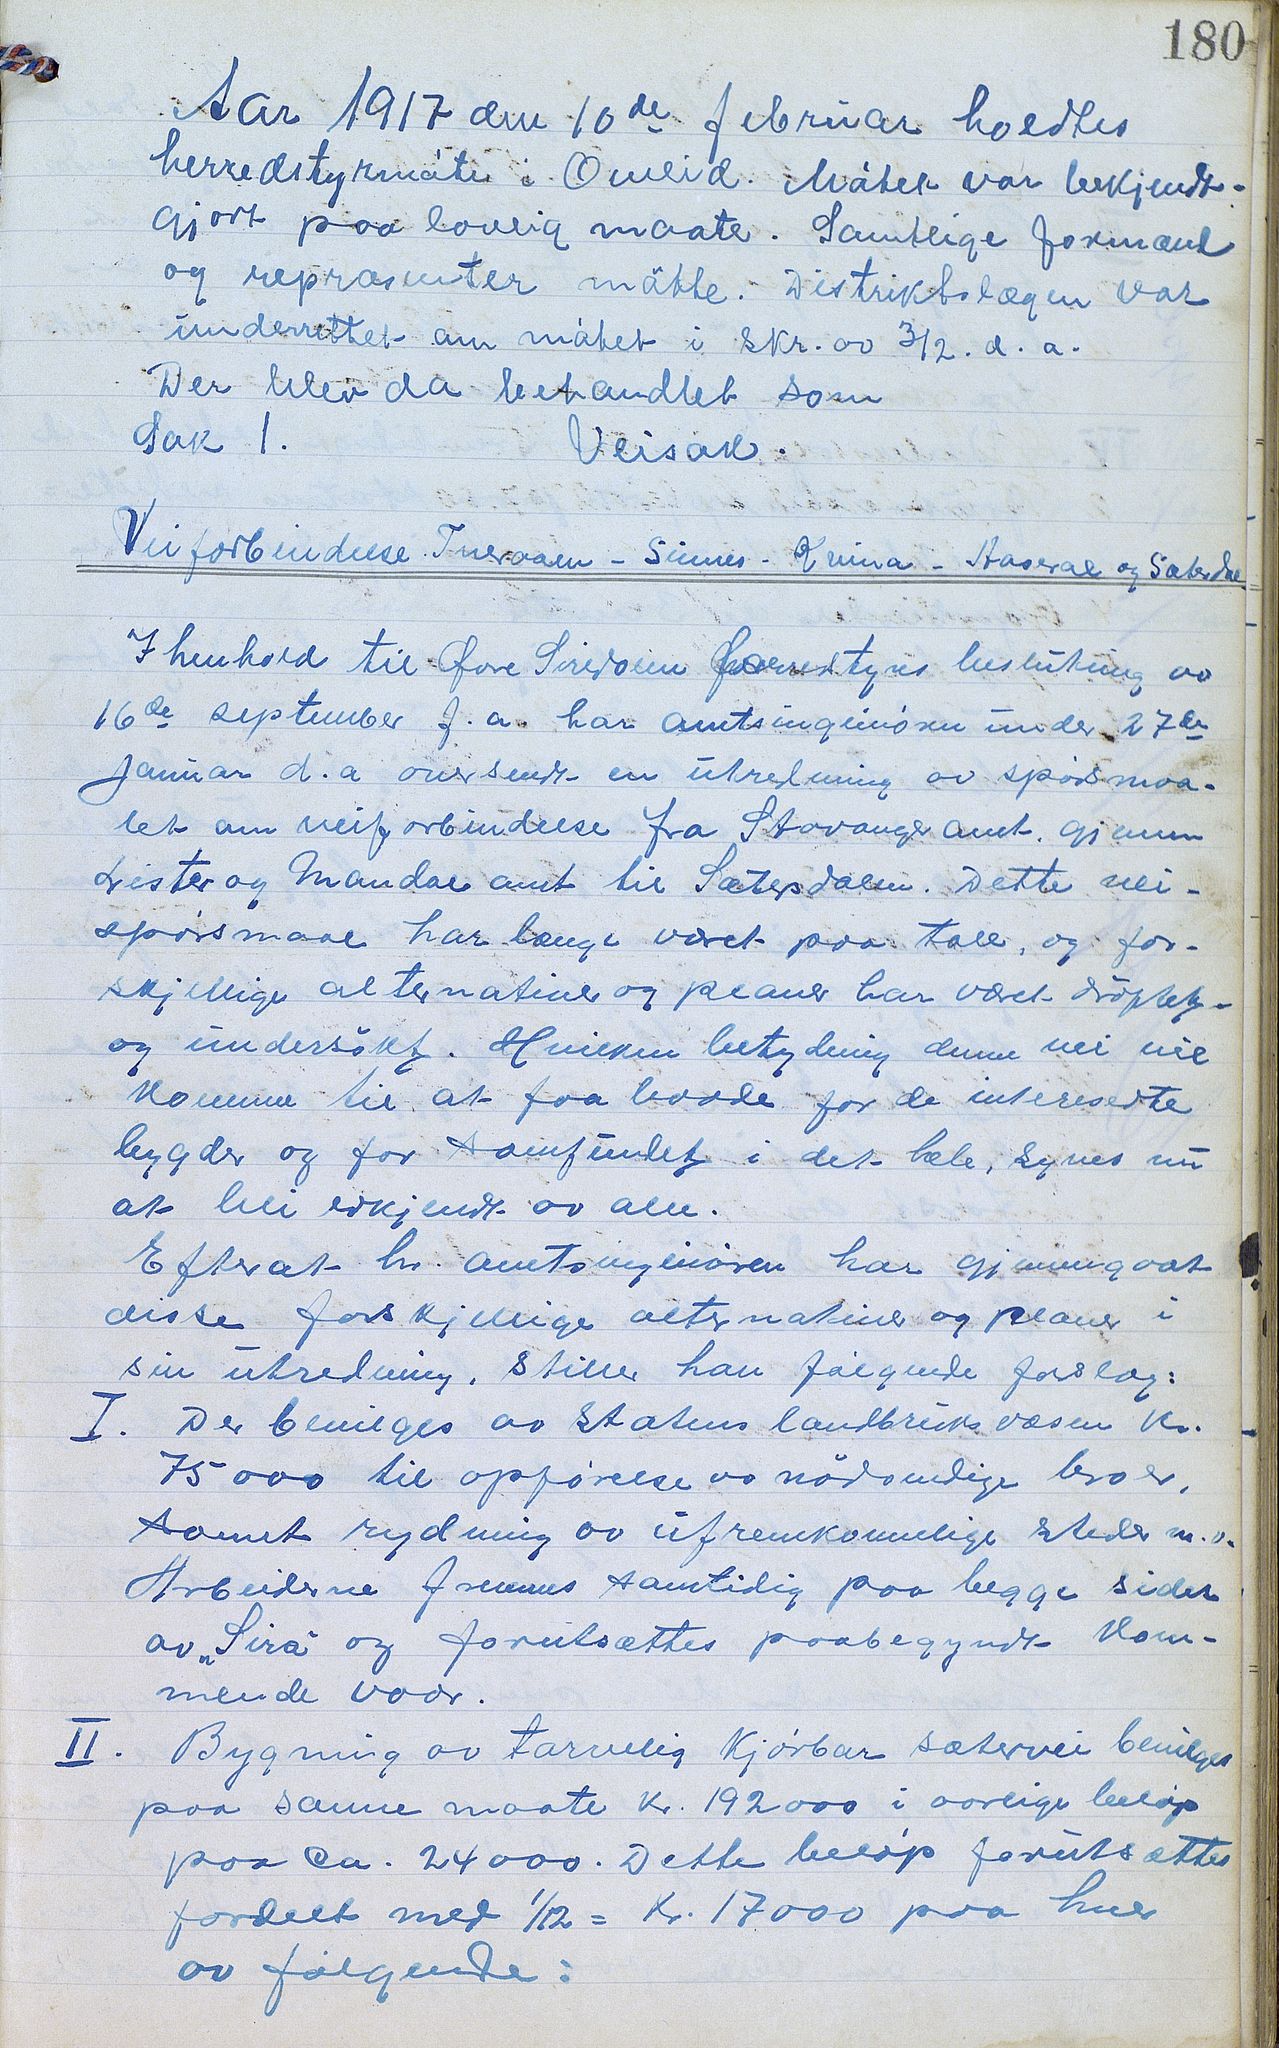 180
Aar 1917 den 10de februar holdtes
herredstyrmöte i Omlid. Mötet var bekjendt-
gjort paa lovlig maate. Samtlige formænd
og repræsenter mötte. Distriktslægen var
underrettet om mötet i skr. av 3/2. d. a.
Der blev da behandlet som
Sak 1. Veisak.
Veiforbindelse Tveraaen - Sinnes - Kvina - Aaseral og Sæterdal
I henhold til Övre Sirdalen herredstyrs beslutning av
16de september f. a. har amtsingeniören under 27de
januar d. a oversendt en utredning av spörsmaa-
let om veiforbindelse fra Stavanger amt. gjennem
Lister og Mandal amt til Sætersdalen. Dette vei-
spörsmaal har længe været paa tale, og for-
skjellige alternativer og planer har været dröftet
og undersökt. Hvilken betydning denne vei vil
komme til at faa baade for de intereserte
bygder og for samfundet i det hele, synes nu
at bli erkjendt av alle.
Efterat hr. amtsingeniören har gjennemgaat
disse forskjellige alternativer og planer i
sin utredning, stiller han fölgende forslag:
I. Der bevilges av Statens landbruksvæsen kr.
75000 til opförelse av nödvendige broer,
samt rydning av ufremkommelige steder m. v.
Arbeiderne fremmes samtidig paa begge sider
av „Sira" og forutsættes paabegyndt kom-
mende vaar.
II. Bygning av tarvelig kjörbar sætervei bevilges
paa samme maate kr. 192000 i aarlige belöp
paa ca. 24000. Dette belöp forutsættes
fordelt med 1/12 = kr. 17000 paa hver
av fölgende: